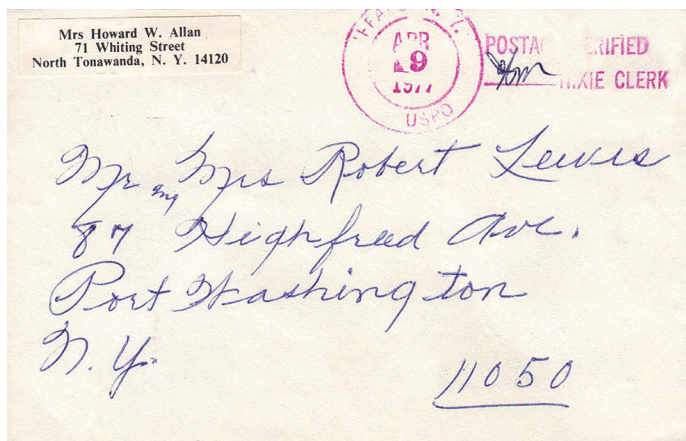 Mrs Howard W. Allan
71 Whiting Street
North Tonawanda, N. Y. 14120
APR
9
1977
USPO
POSTA ERIFIED
NIXIE CLERK
Mr and Mrs Robert Lewis
87 Highfred Ave.
Port Washington
N.Y.
11050